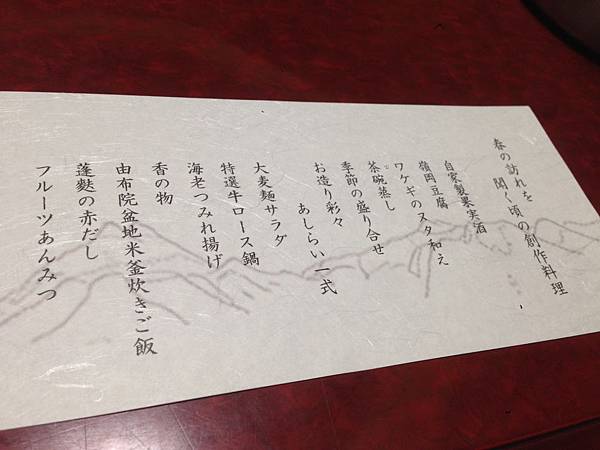 春の訪れを
聞く頃の創作料理
自家製果実酒
嶺岡豆腐
ワケギのスタ和え
茶碗蒸し
季節の盛り合せ
お造り彩々
あしらい一式
大麦麺サラダ
特選牛ロース鍋
海老つみれ揚げ
香の物
由布院盆地米釜炊きご飯
蓬麩の赤だし
フルーツあんみつ